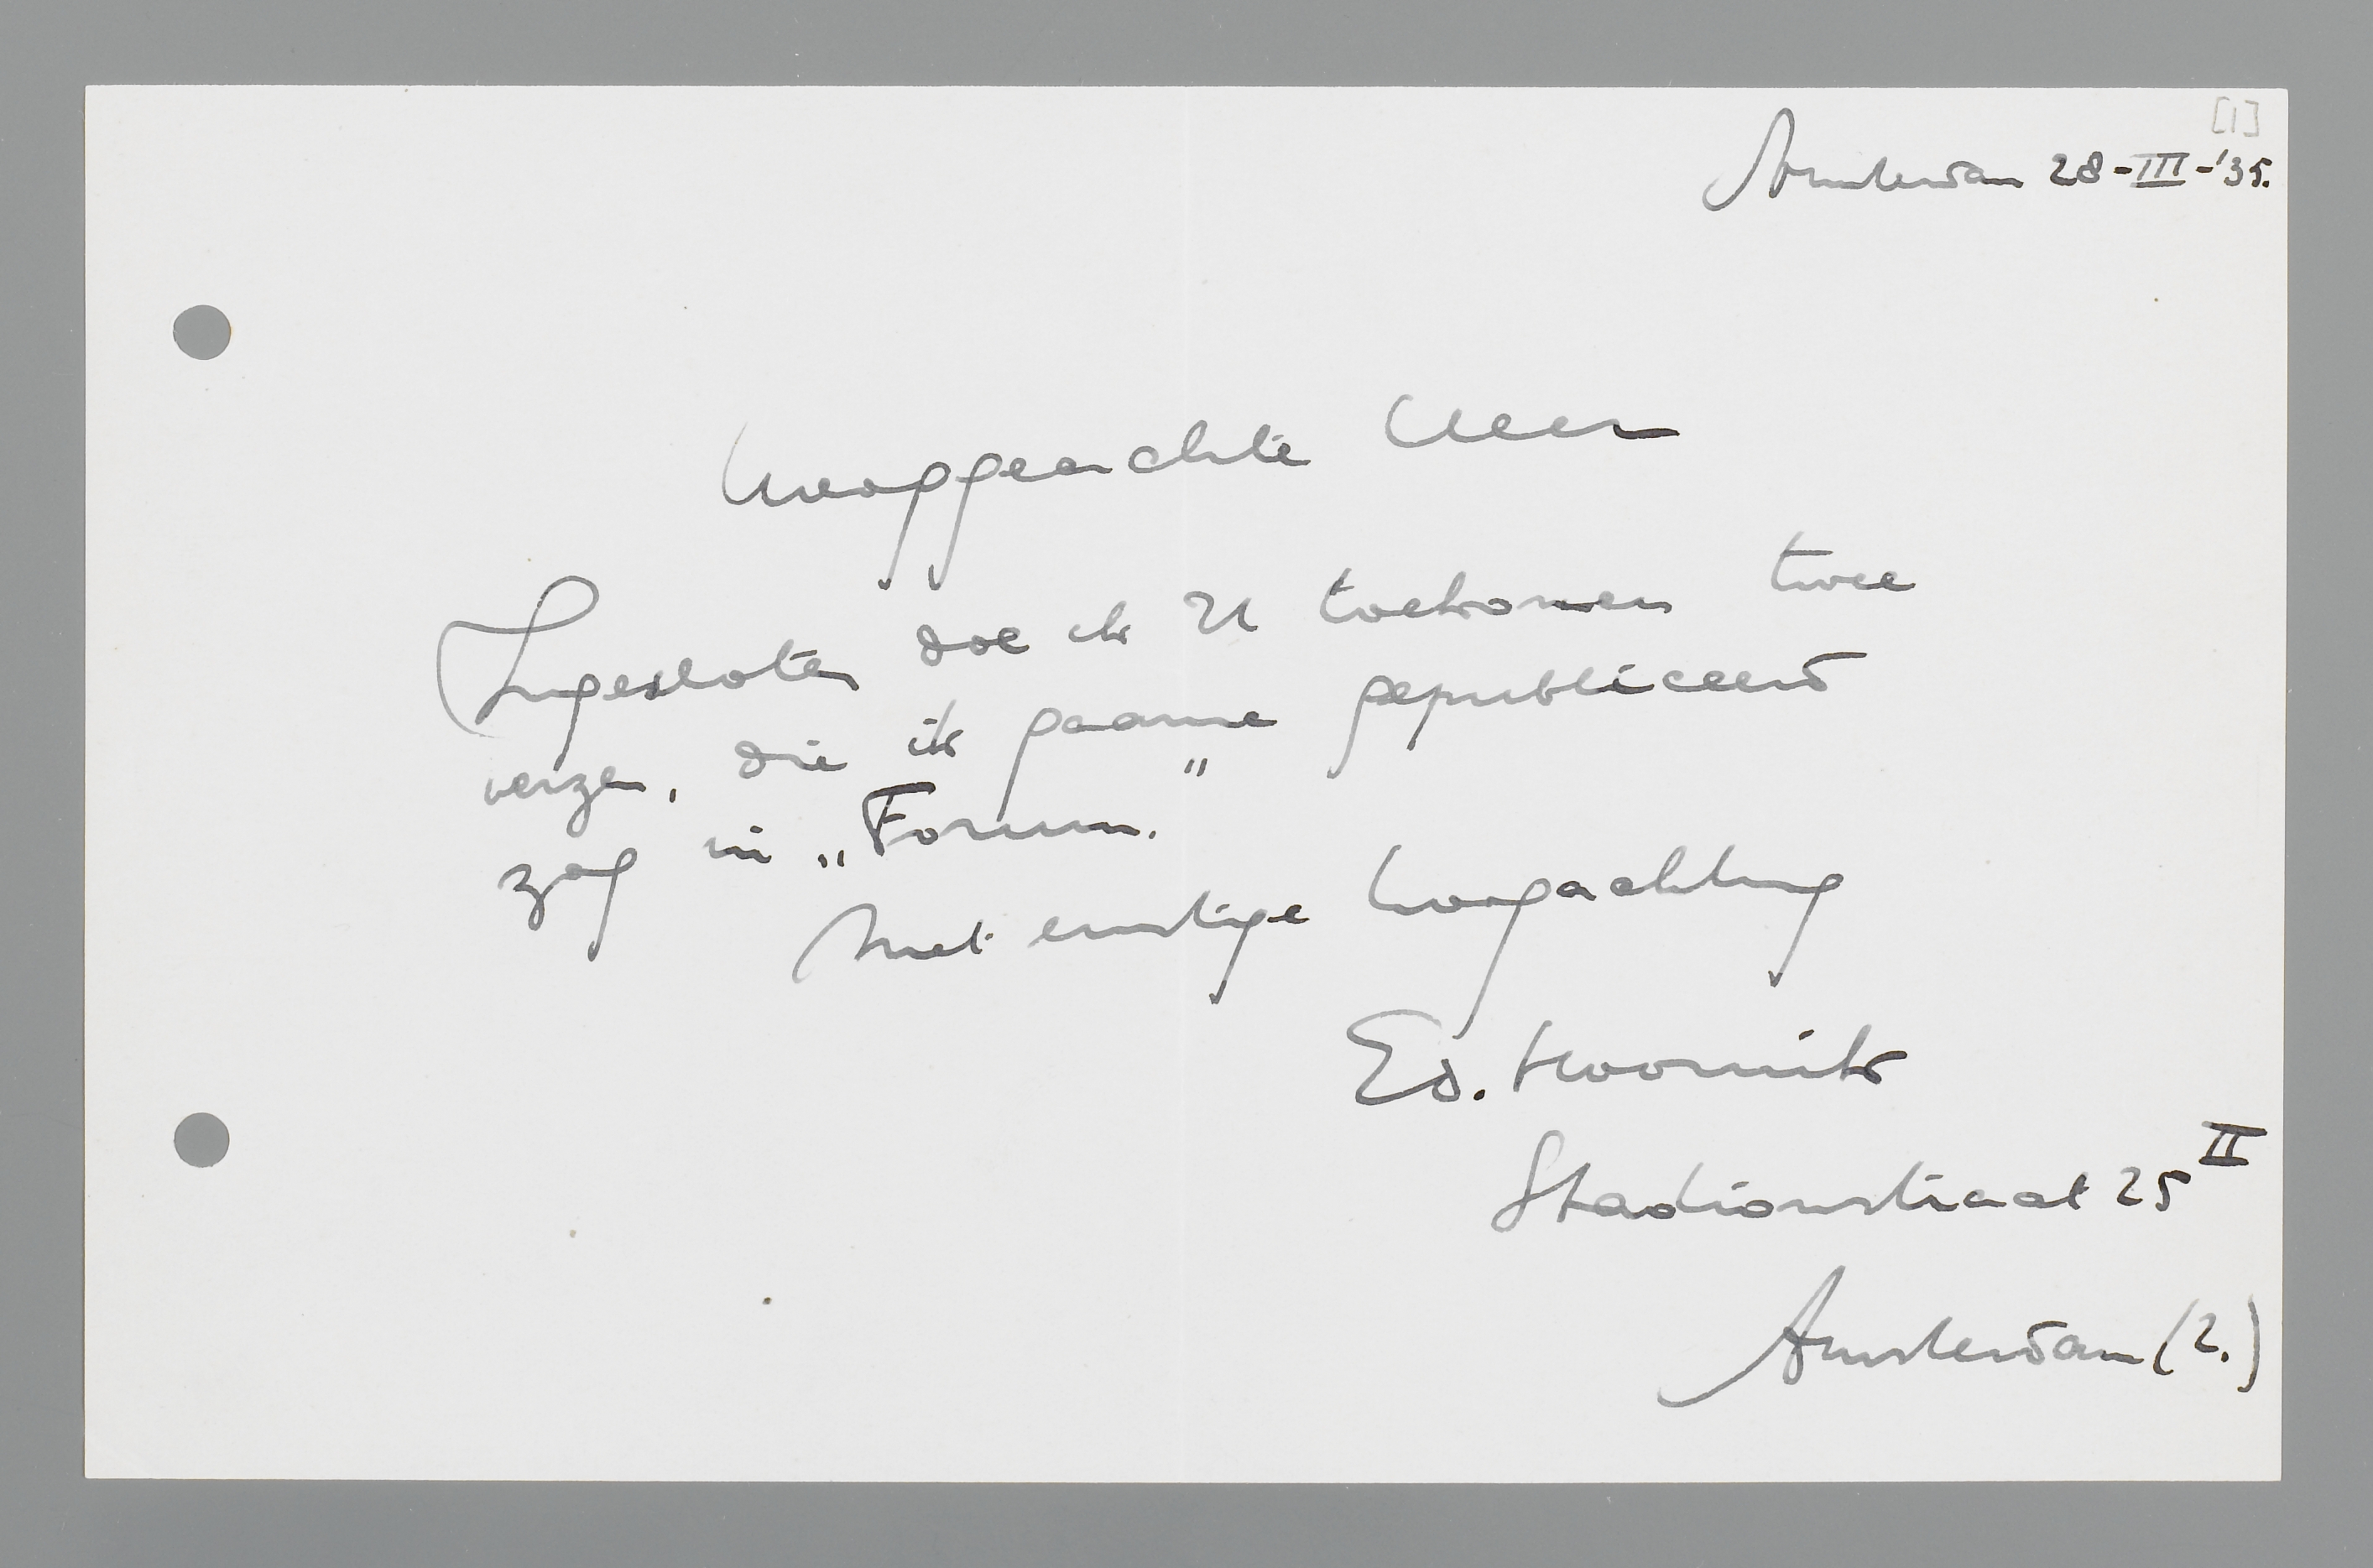 [1]
Amsterdam 28-III-'35.
Hooggeachte Heer
Ingesloten doe ik U toekomen twee
verzen, die ik gaarne gepubliceerd
zag in „Forum."
Met ernstige hoogachting
Ed. Hoornik
Stadionstraat 25 II
Amsterdam (2.)